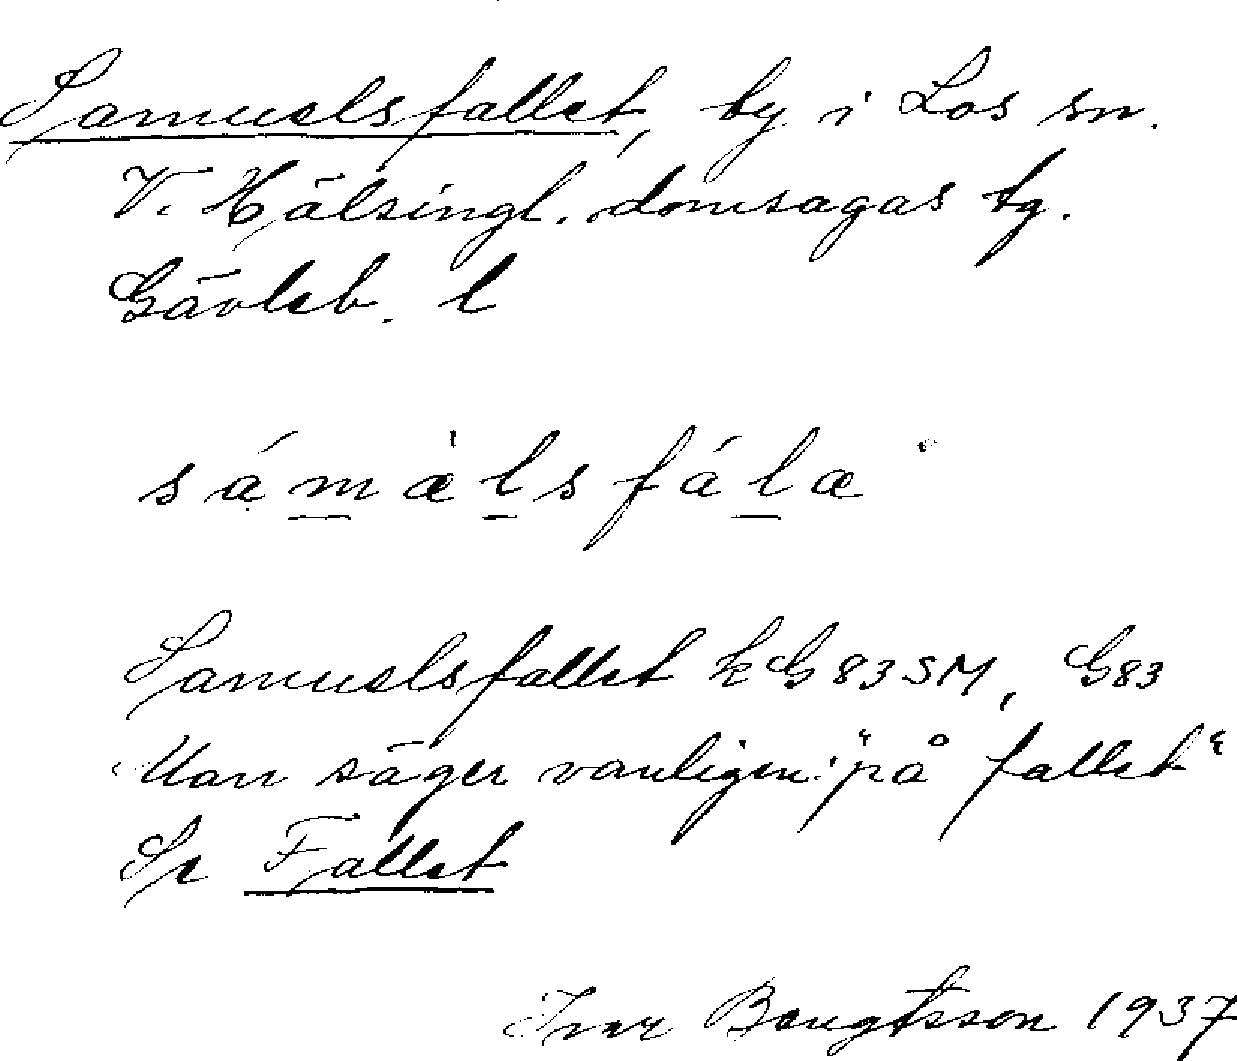 Samuelsfallet, by i Los sn.
V. Hälsingl. domsagas tg.
Gävleb. l
sámæ̀lsfálæ
Samuelsfallet kG83SM, G83
Man säger vanligen: "på fallet"
Se Fallet
Ivar Bengtsson 1937